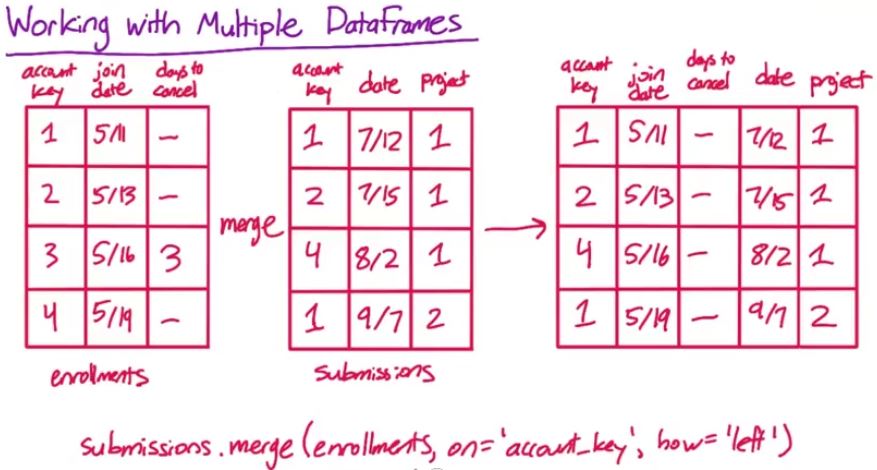 Working with Multiple DataFrames
account key join date days to cancel
1 5/11 –
2 5/13 –
3 5/16 3
4 5/19 –
enrollments
merge
account key date project
1 7/12 1
2 7/15 1
4 8/2 1
1 9/7 2
submissions
account key join date days to cancel date project
1 5/11 – 7/12 1
2 5/13 – 7/15 1
4 5/16 – 8/2 1
1 5/19 – 9/7 2
submissions.merge(enrollments, on='account_key', how='left')